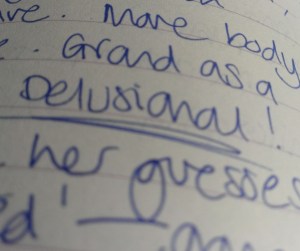 ve. More body
. Grand as a
Delusional!
her guesses
d'